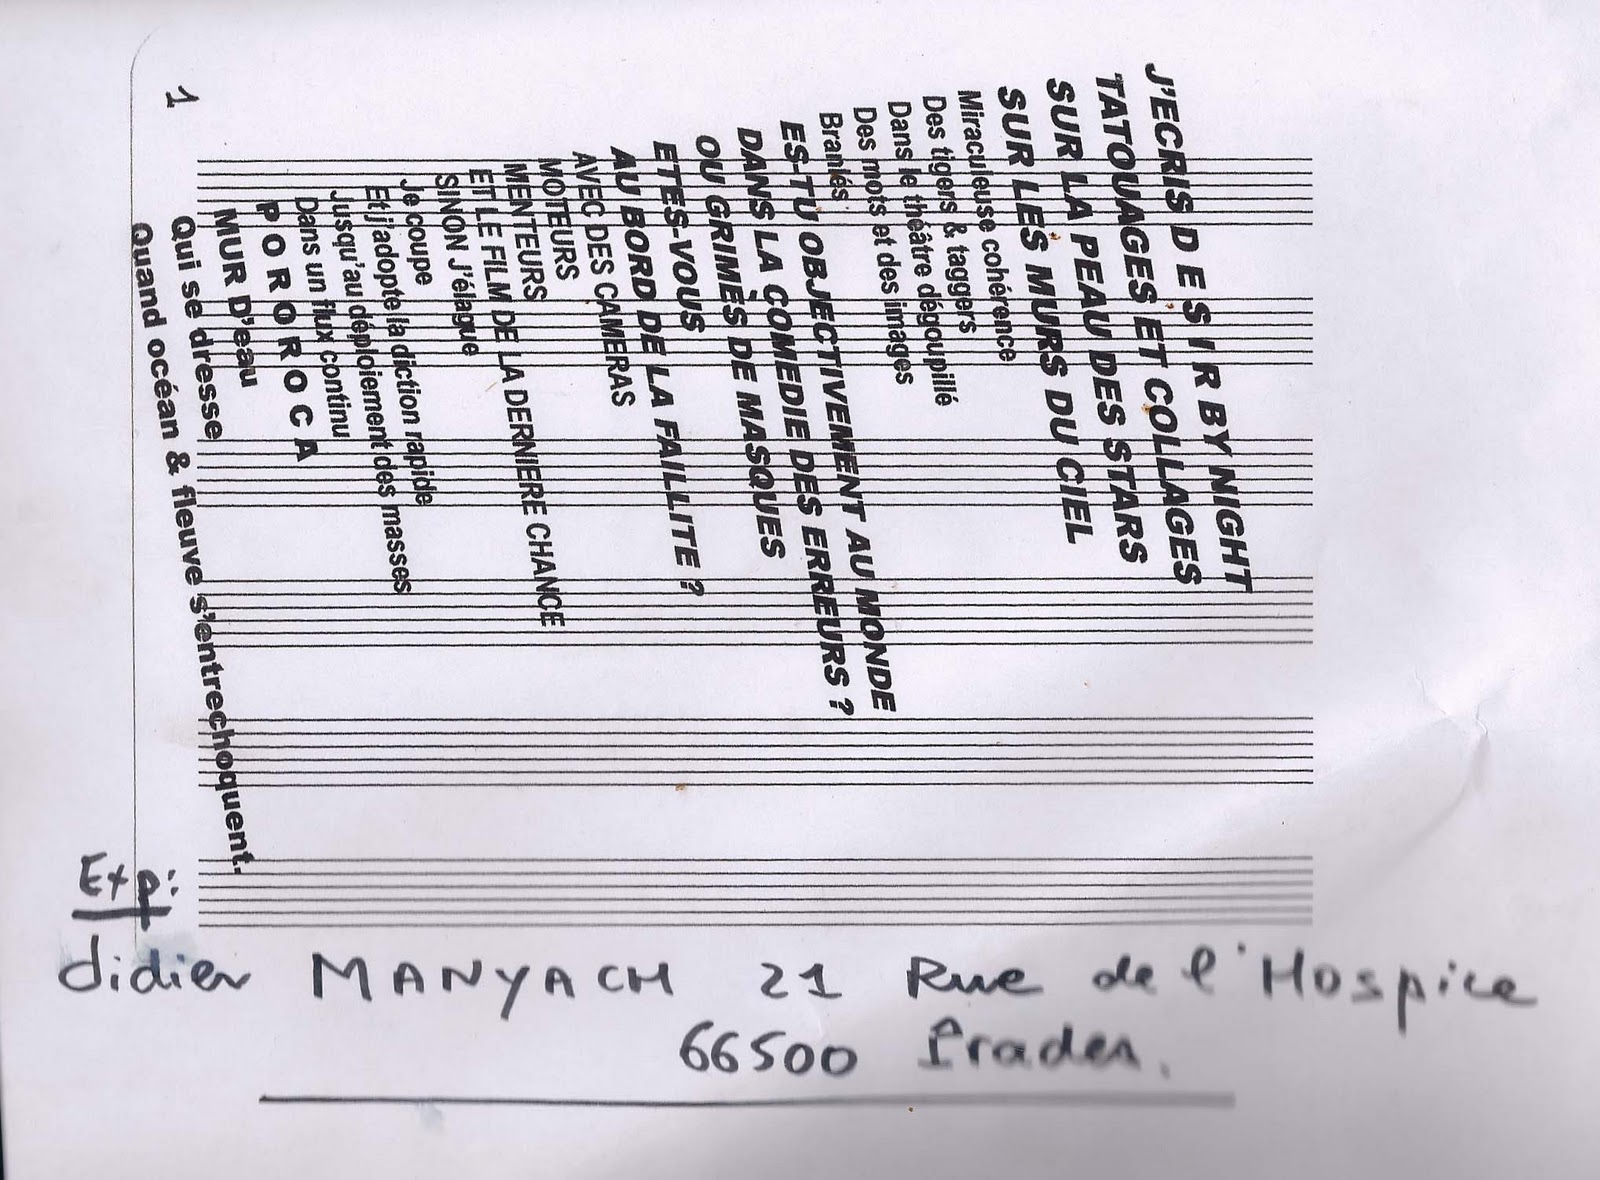 J'ECRIS D E S I R BY NIGHT
TATOUAGES ET COLLAGES
SUR LA PEAU DES STARS
SUR LES MURS DU CIEL
Miraculeuse cohérence
Des tigers & taggers
Dans le théâtre dégoupillé
Des mots et des images
Branlés
ES-TU OBJECTIVEMENT AU MONDE
DANS LA COMEDIE DES ERREURS ?
OU GRIMÉS DE MASQUES
ETES-VOUS
AU BORD DE LA FAILLITE ?
AVEC DES CAMERAS
MOTEURS
MENTEURS
ET LE FILM DE LA DERNIERE CHANCE
SINON J'élague
Je coupe
Et j'adopte la diction rapide
Jusqu'au déploiement des masses
Dans un flux continu
P O R O R O C A
MUR D'eau
Qui se dresse
Quand océan & fleuve s'entrechoquent.
1
Exp:
didier MANYACH 21 Rue de l'Hospice
66500 Prades.